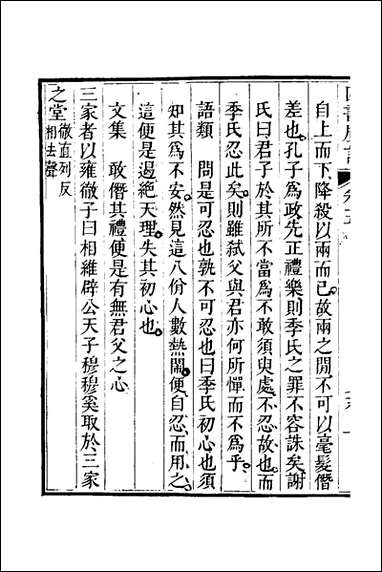 自上而下降殺以兩而已故兩之閒不可以毫髮僭
差也孔子爲政先正禮樂則季氏之罪不容誅矣謝
氏曰君子於其所不當爲不敢須臾處不忍故也而
季氏忍此矣則雖弑父與君亦何所憚而不爲乎
語類　問是可忍也孰不可忍也曰季氏初心也須
知其爲不安然見這八佾人數熱鬧便自忍而用之
這便是遏絕天理失其初心也
文集　敢僭其禮便是有無君父之心
三家者以雍徹子曰相維辟公天子穆穆奚取於三家
之堂徹直列反相去聲